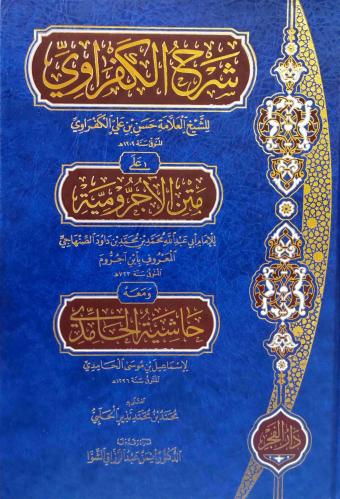 شرح الكفراوي
للشيخ العلامة حسن بن علي الكفراوي
المتوفى سنة ١٢٠٢هـ
على
متن الآجرومية
للإمام أبي عبد الله محمد بن محمد بن داود الصنهاجي
المعروف بابن آجروم
المتوفى سنة ٧٢٣هـ
ومعه
حاشية الحامدي
لإسماعيل بن موسى الحامدي
المتوفى سنة ١٣١٦هـ
اعتنى به
محمد بن محمد نذير الحلبي
قرأه وقدم له
الدكتور أيمن عبد الرزاق الشوا
دار الفجر